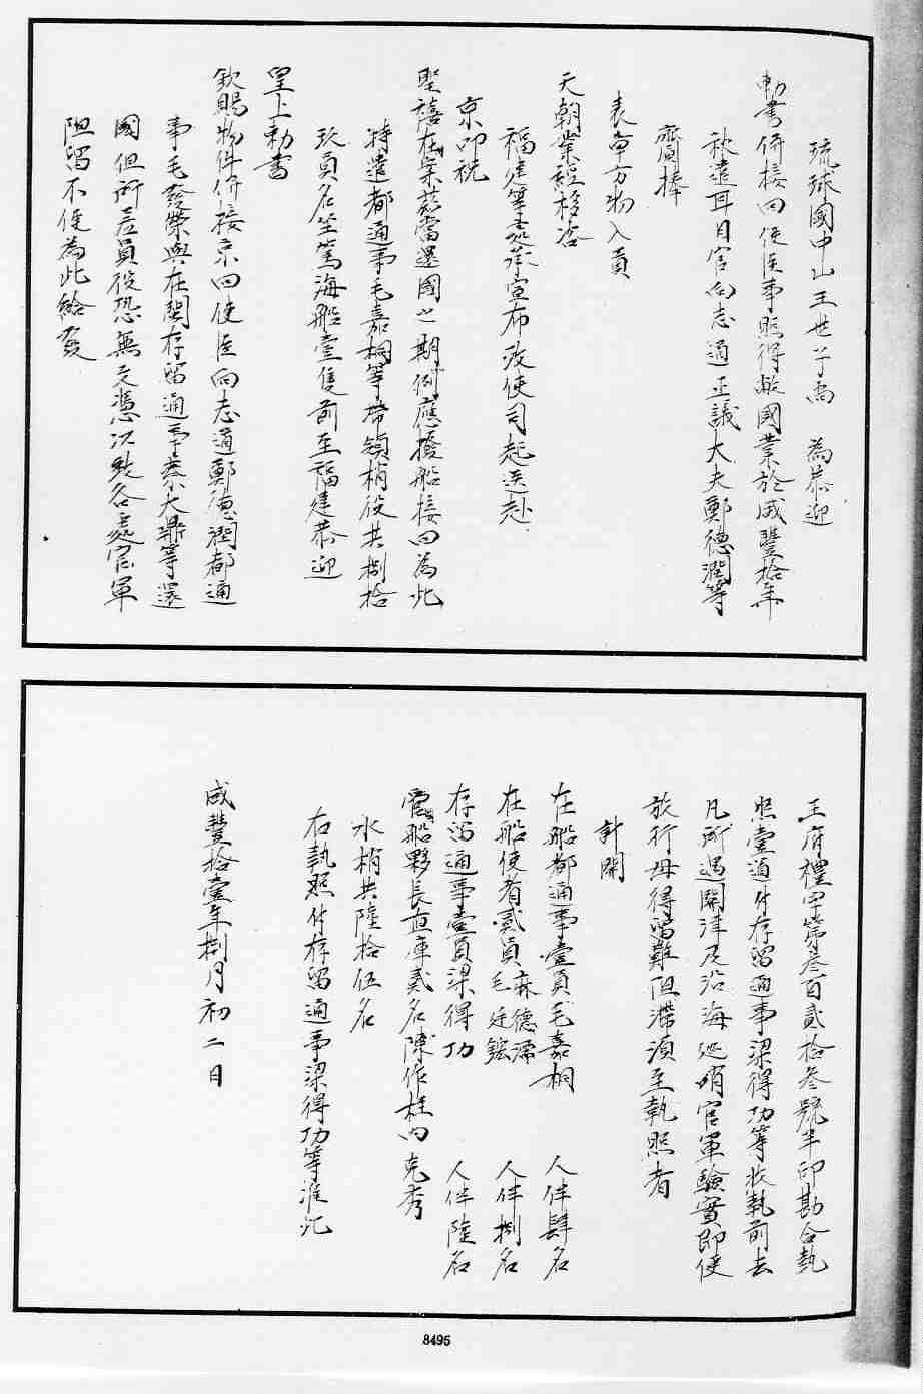 琉球國中山王世子尚　為恭迎
勅書併接回使臣事照得敝國業於咸豐拾年
秋遣耳目官向志道正議大夫鄭德潤等
齎捧
表章方物入貢
天朝業經移咨
福建等處承宣布政使司起送赴
京叩祝
聖禧在案茲當還國之期例應撥船接回為此
特遣都通事毛嘉桐等帶領梢役共捌拾
玖員名坐駕海船壹隻前至福建恭迎
皇上勅書
欽賜物件併接京回使臣向志道鄭德潤都通
事毛發榮與在閩存留通事蔡大鼎等還
國但所差員役恐無文憑以致各處官軍
阻留不便為此給發
王府禮字第叁百貳拾叁號半印勘合執
照壹道付存留通事梁得功等收執前去
凡所遇關津及沿海巡哨官軍驗實即便
放行毋得留難阻滯須至執照者
計開
在船都通事壹員毛嘉桐　人伴肆名
在船使者貳員麻德濡毛廷鋐　人伴捌名
存留通事壹員梁得功　人伴陸名
管船夥長直庫貳名陳作桂向克秀
水梢共陸拾伍名
右執照付存留通事梁得功等准此
咸豐拾壹年捌月初二日
8495